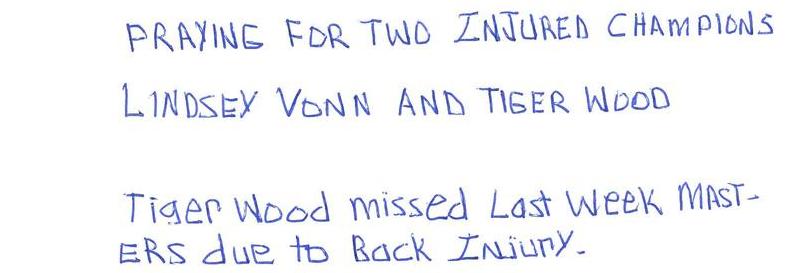 PRAYING FOR TWO INJURED CHAMPIONS
LINDSEY VONN AND TIGER WOOD
Tiger Wood missed Last Week MAST-
ERS due to Back INjury.